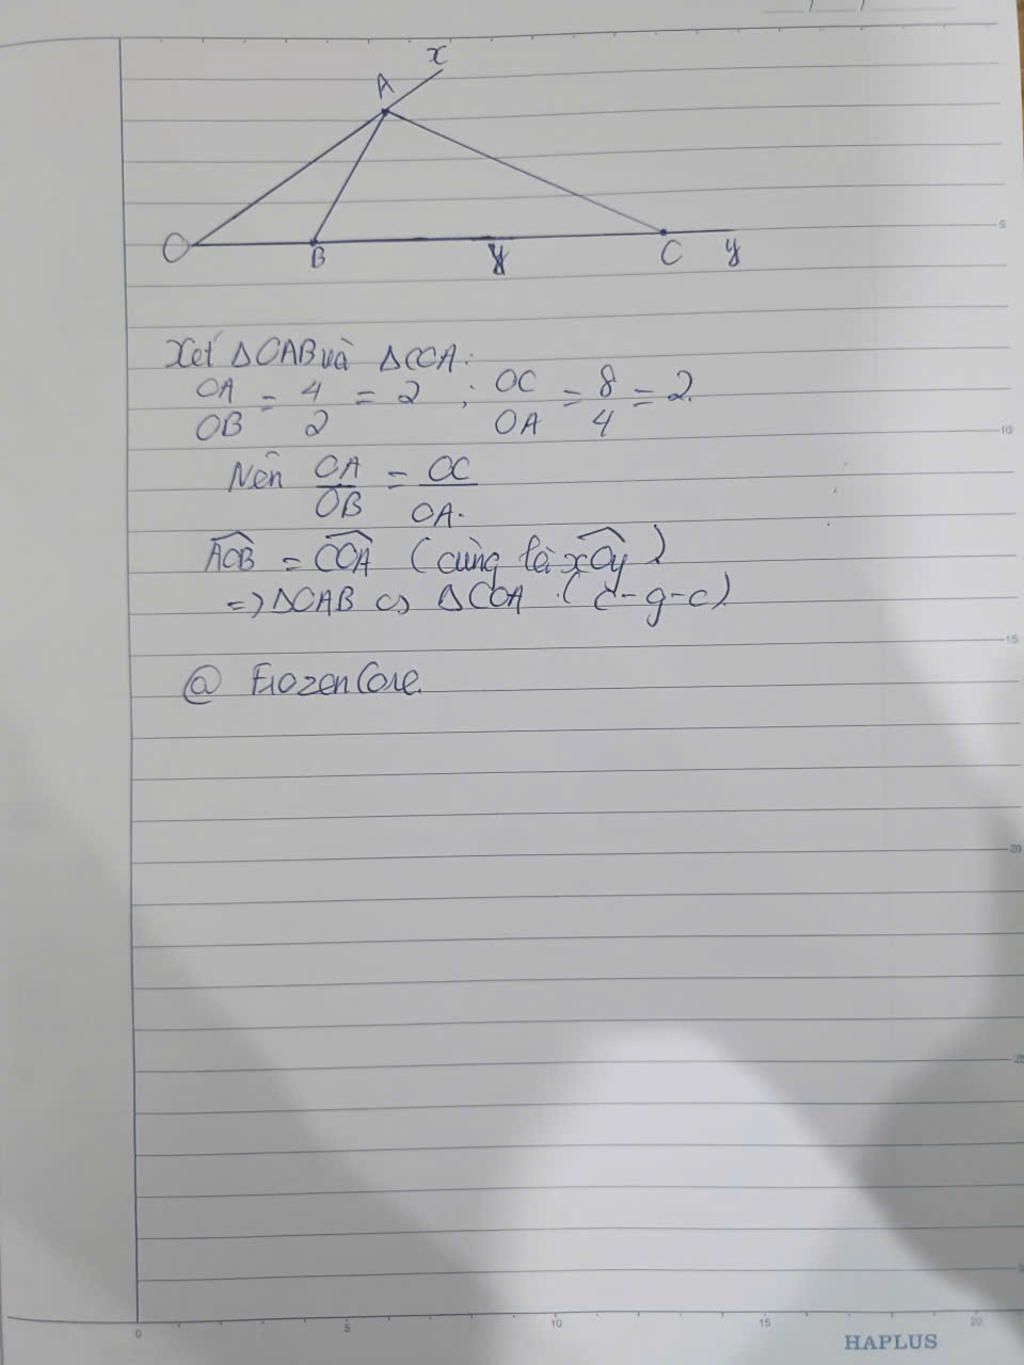 x
A
O B y C y
Xét ΔOAB và ΔCOA:
OA/OB = 4/2 = 2 ; OC/OA = 8/4 = 2.
Nên OA/OB = OC/OA.
AOB = COA (cùng là xOy)
=> ΔOAB ∽ ΔCOA (c-g-c)
@ FrozenCore.
5
10
15
20
25
0 5 10 15 20
HAPLUS